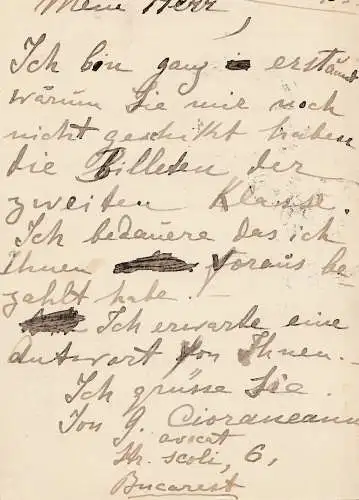 Mein Herr!
Ich bin ganz erstaunt
warum Sie mir noch
nicht geschikt haben
die Billeten der
zweiten Klasse.
Ich bedauere das ich
Ihnen Voraus be-
zahlt habe. —
Ich erwarte eine
Antwort von Ihnen. —
Ich grüsse Sie.
Jon G. Cioraneanu
avocat
Str. Scoli, 6,
Bucarest